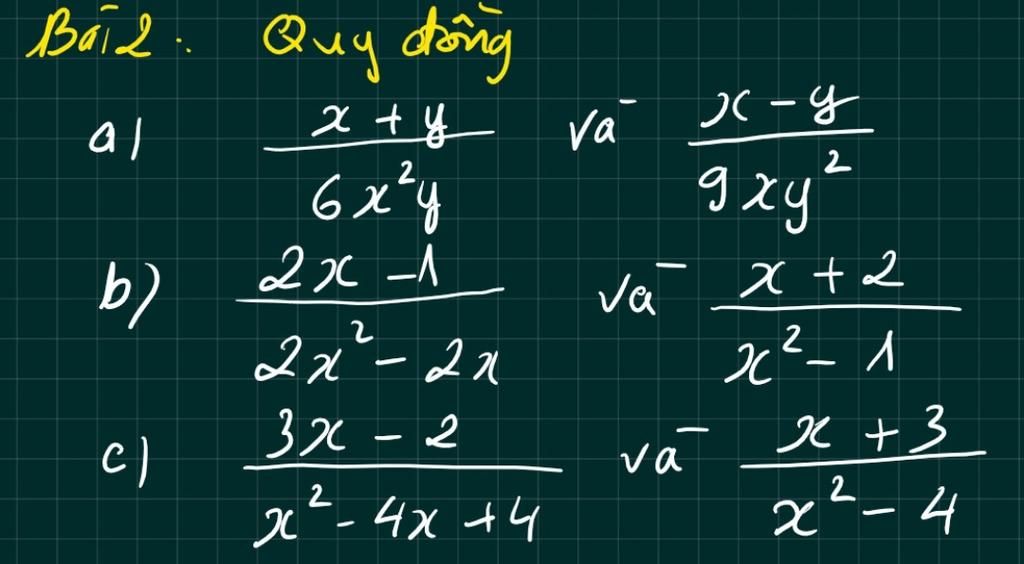 Bài 2: Quy đồng
a) \frac{x + y}{6x^2y} và \frac{x - y}{9xy^2}
b) \frac{2x - 1}{2x^2 - 2x} và \frac{x + 2}{x^2 - 1}
c) \frac{3x - 2}{x^2 - 4x + 4} và \frac{x + 3}{x^2 - 4}